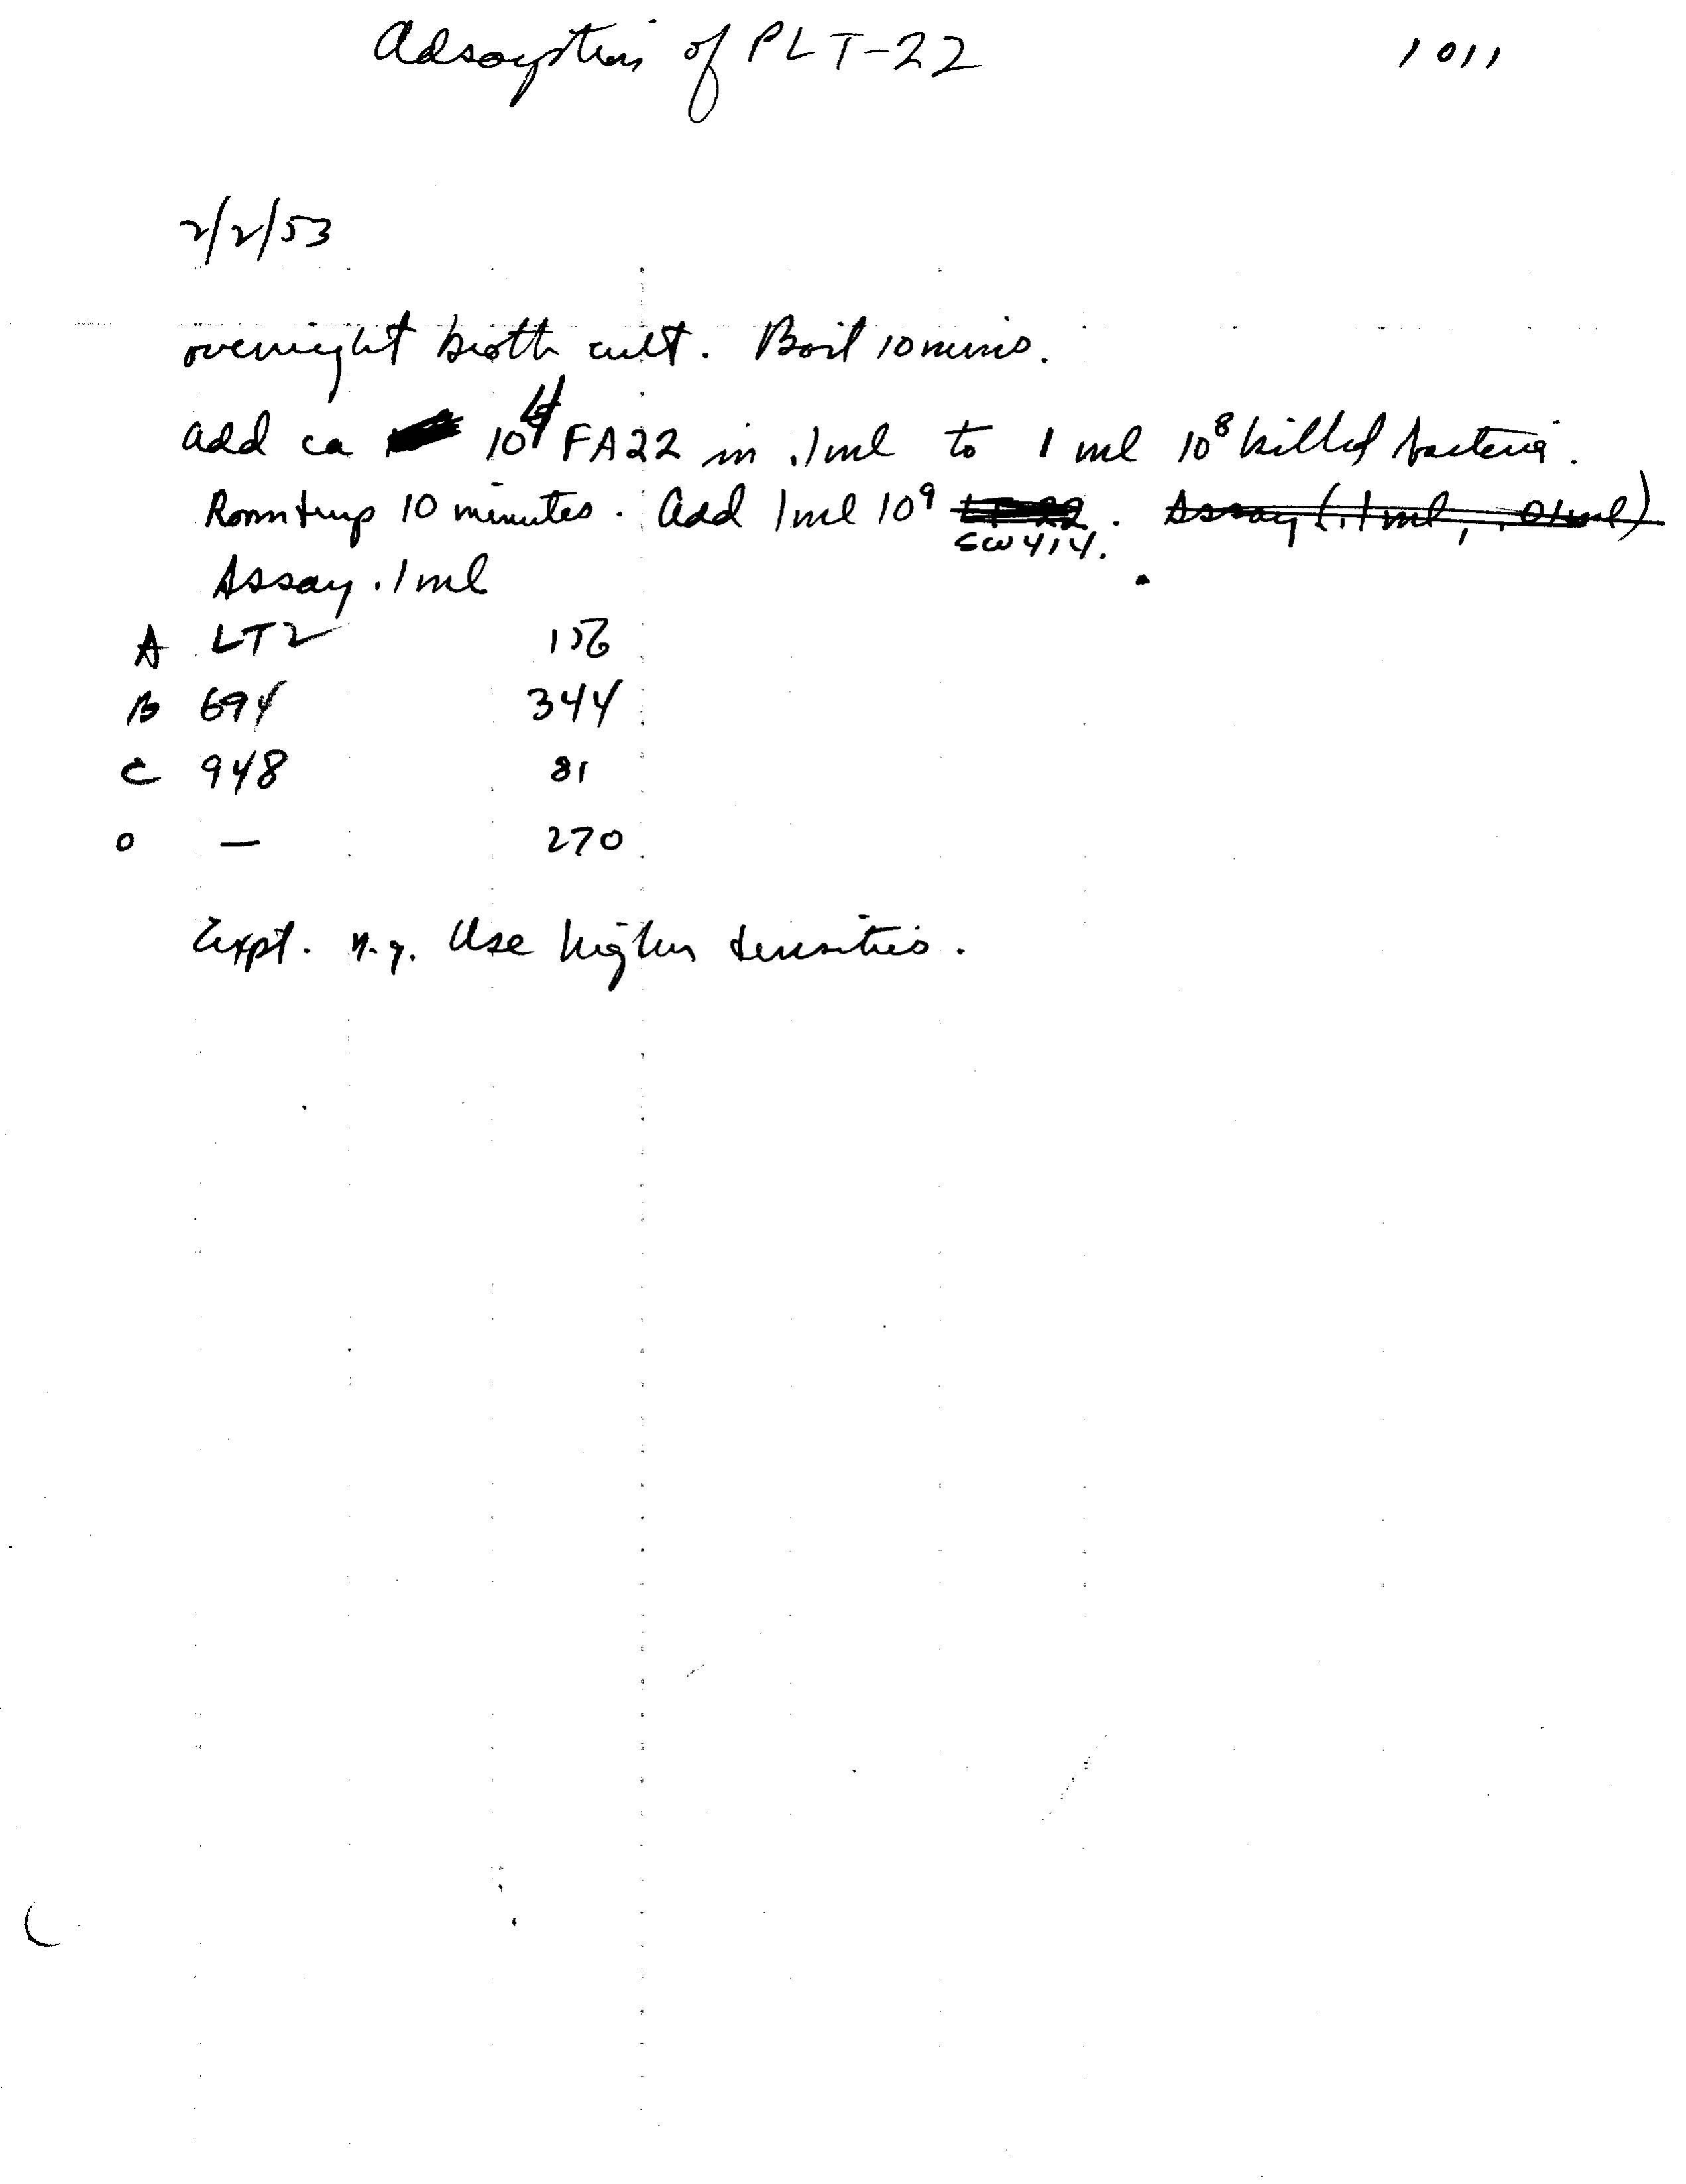 Adsorption of PLT-22 1011
2/2/53
overnight broth cult. Boil 10 mins.
Add ca 10⁴ FA22 in .1ml to 1 ml 10⁸ killed bacteria.
Room temp 10 minutes. Add 1ml 10⁹ LT 22. Assay (.1ml, .01ml)
SW414.
Assay .1ml
A LT2
B 694 344
C 948 81
0 — 270
Expt. n.g. Use higher densities.